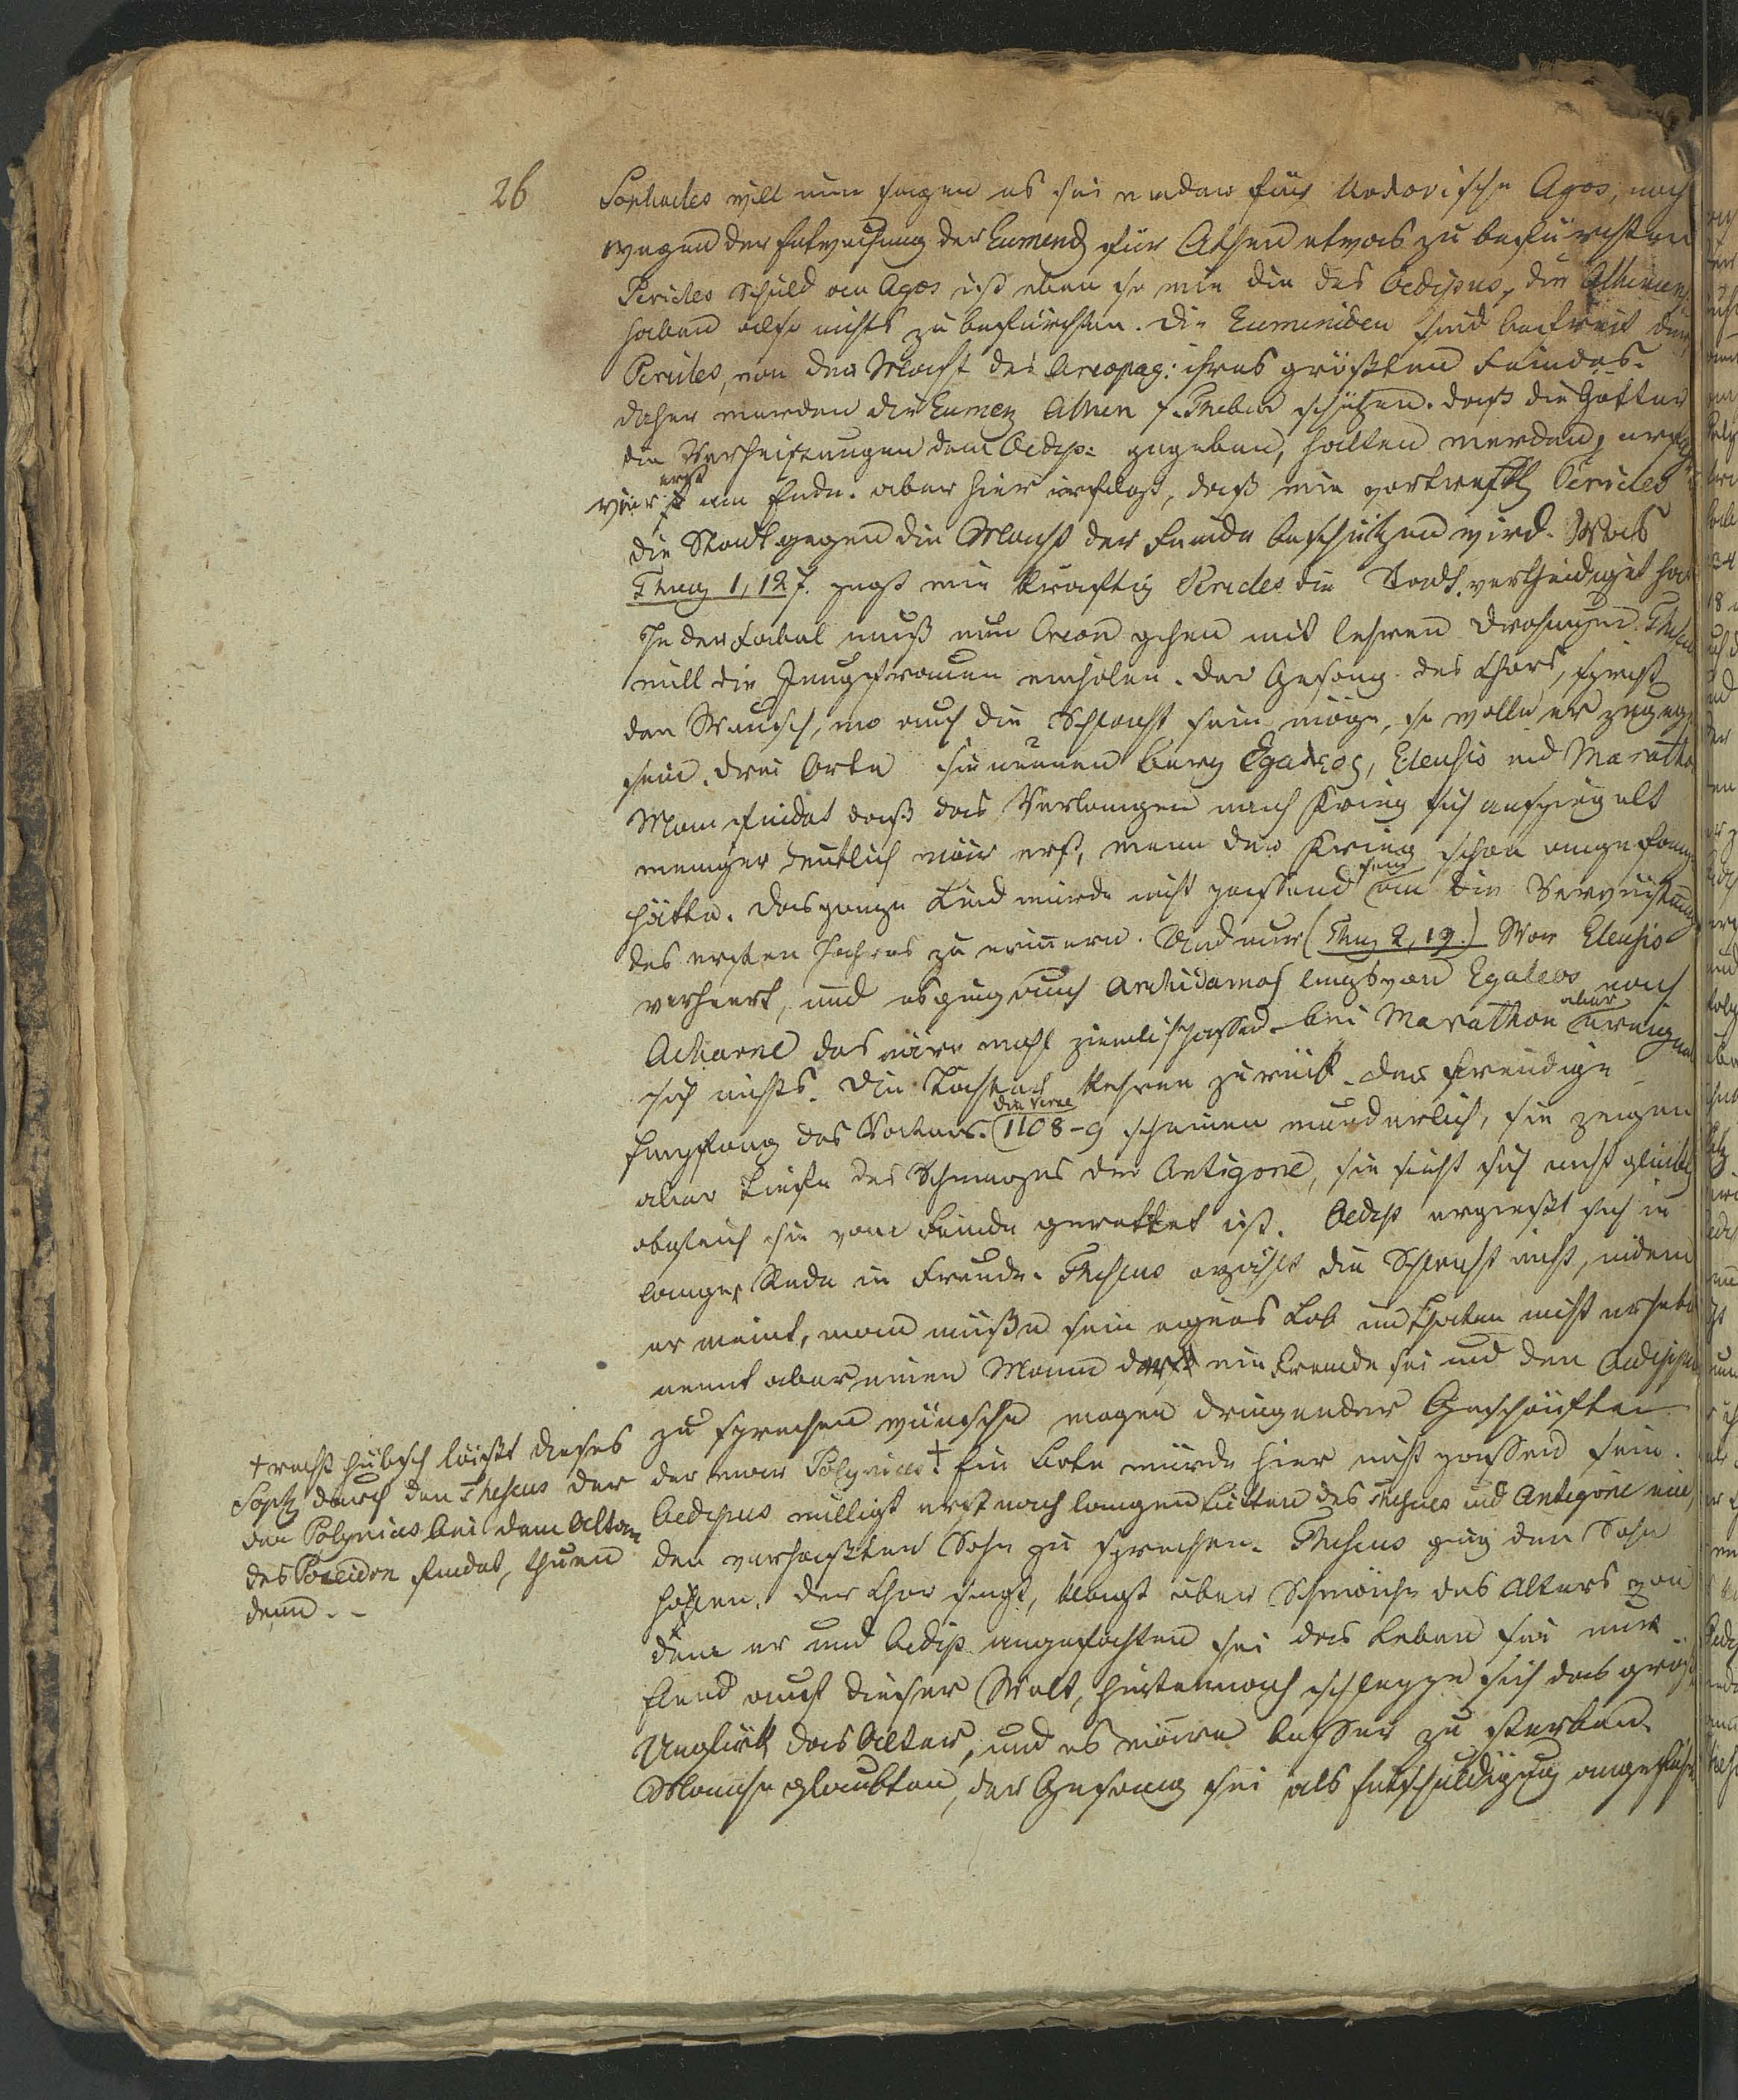 26
Sophocles will nun sagen es sei weder fürs Kodrische Agos, noch
wegen der Entweihung der Eumenid für Athen etwas zu befürchten
Pericles Schuld am Agos ist eben so wie die des Oedipus, die Athenien
haben also nichts zu befürchten. Die Eumeniden sind befreit durch
Pericles, von der Macht des Areopag: ihres größten Feindes.
daher werden die Eumen Athen f. Theben schützen. daß die Götter
die Verheißungen dem Oedip: gegeben, halten werden,
wir erst am Ende. aber hier erfolgt, daß wie Pericles
die Stadt gegen die Macht der Feinde beschützen wird. Was
Thuc 1, 127. sagt wie kräftig Pericles die Stadt vertheidiget hat
In der Fabel muß nun Creon gehen mit leeren Drohungen. Theseus
will die Jungfrauen einholen. Der Gesang des Chors, spricht
den Wunsch, wo auch die Schlacht sein möge, so wolle er zugegen
sein. drei Orte sie nennen Berg Egaleos, Eleusis und Marathon
Man findet daß das Verlangen nach Krieg sich aufspiegelt
weniger deutlich wär erst, wenn der Krieg schon angefangen
hätte. Das ganze Lied würde nicht passend sein um die Verwüstung
des ersten Jahres zu erinnern. Und nur (Thuc 2, 19.) War Eleusis
verheert, und es ging auch Archidamos längs von Egaleos nach
Acharne das wäre wohl ziemlich passend bei Marathon aber ereignet
sich nichts. Die Töchter kehren zurück. das freudige
Empfang des Vaters. die Verse (1108-9 scheinen wunderlich, sie zeigen
aber Tiefe des Schmerzes der Antigone, sie sieht sich nicht glücklich
obgleich sie vom Feinde gerettet ist. Oedip ergießt sich in
langer Rede in Freude. Theseus erzählt die Schlacht nicht, indem
er meint, man müße sein eignes Lob und Thaten nicht erheben
nennt aber einen Mann der ein Fremde sei und den Oedipus
zu sprechen wünsche wegen dringender Geschäfte
der war Polynices † Ein Bote würde hier nicht passend sein.
Oedipus willigt erst nach langen Bitten des Theseus und Antigone ein,
den verhaßten Sohn zu sprechen. Theseus ging den Sohn
hohlen. der Chor singt, klagt über Schwäche des Alters von
dem er und Oedip angefochten sei das Leben sei nur
Elend auf dieser Welt, hintennach schleppe sich das größte
Unglück das Alter, und es wäre besser zu sterben.
Manche glaubten, der Gesang sei als Entschuldigung angeführt
† recht hübsch läßt dieses
Soph durch den Theseus der
den Polynices bei dem Altar
des Poseidon findet, thuen
denn. -